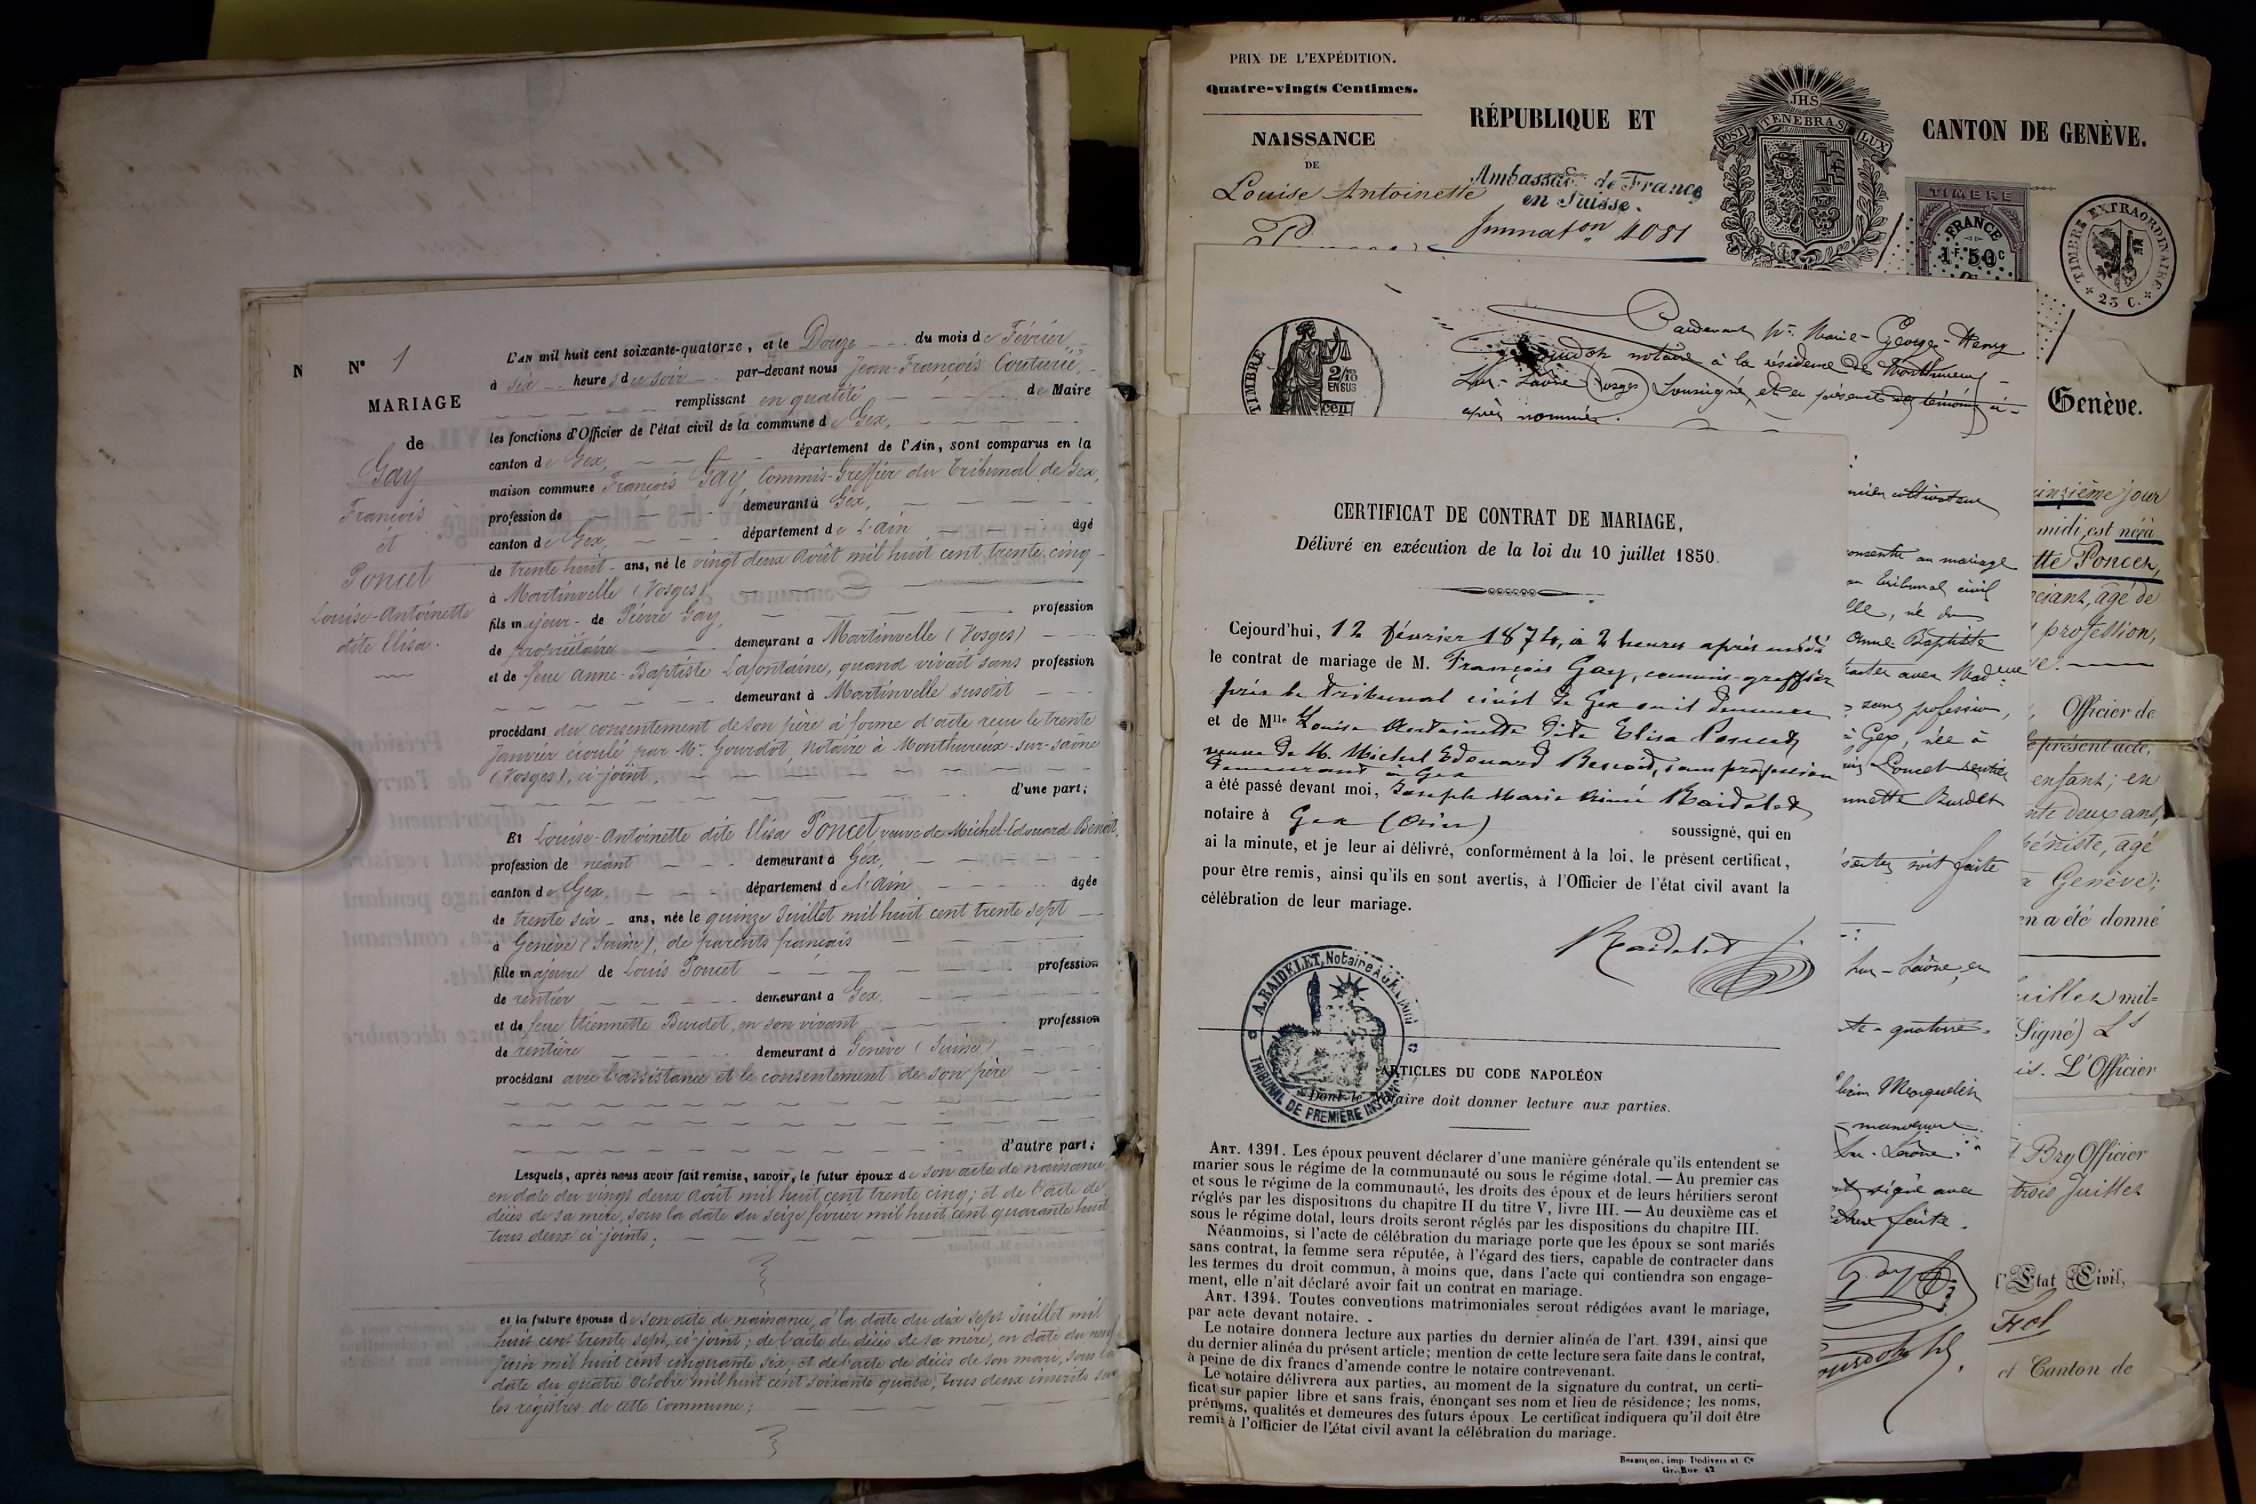 N
N° 1
MARIAGE
de
Gay
François
et
Poncet
Louise-Antoinette
dite Elisa.
L'AN mil huit cent soixante-quatorze, et le Douze du mois de Février
à six heures du soir par-devant nous Jean-François Couturié,
remplissant en qualité de Maire
les fonctions d'Officier de l'état civil de la commune de Gex,
canton de Gex, département de l'Ain, sont comparus en la
maison commune François Gay, Commis-Greffier du Tribunal de Gex,
profession de demeurant à Gex,
canton de Gex, département de L'Ain âgé
de trente huit ans, né le vingt deux Août mil huit cent trente cinq
à Martinvelle (Vosges)
fils majeur de Pierre Gay, profession
de propriétaire demeurant à Martinvelle (Vosges)
et de feue Anne-Baptiste Lafontaine, quand vivait sans profession
demeurant à Martinvelle susdit
procédant du consentement de son père à forme d'acte reçu le trente
Janvier écoulé par Mr. Gourdot, Notaire à Monthureux-sur-Saône
(Vosges), ci-joint,
d'une part;
Et Louise-Antoinette dite Elisa Poncet veuve de Michel-Edouard Benoit,
profession de néant demeurant à Gex,
canton de Gex, département de l'Ain âgée
de trente six ans, née le quinze Juillet mil huit cent trente sept
à Genève (Suisse), de parents français
fille majeure de Louis Poncet profession
de rentier demeurant à Gex,
et de feue Etiennette Burdet, en son vivant profession
de rentière demeurant à Genève (Suisse)
procédant avec l'assistance et le consentement de son père
d'autre part;
Lesquels, après nous avoir fait remise, savoir, le futur époux de son acte de naissance,
en date du vingt deux Août mil huit cent trente cinq; et de l'acte de
décès de sa mère, sous la date du seize février mil huit cent quarante huit
tous deux ci-joints;
et la future épouse de son acte de naissance, à la date du dix sept Juillet mil
huit cent trente sept, ci-joint; de l'acte de décès de sa mère, en date du neuf
Juin mil huit cent cinquante six, et de l'acte de décès de son mari, sous la
date du quatre Octobre mil huit cent soixante quatre, tous deux inscrits sur
les registres de cette Commune;
PRIX DE L'EXPÉDITION.
Quatre-vingts Centimes.
NAISSANCE
DE
Louise Antoinette
RÉPUBLIQUE ET
CANTON DE GENÈVE.
JHS
POST TENEBRAS LUX
Ambassade de France
en Suisse.
Immat.on 4081
TIMBRE
FRANCE
1 F. 50 C
TIMBRE EXTRAORDINAIRE
25 C.
TIMBRE
2/10
EN SUS
Pardevant Me. Marie-Georges-Henry
Gourdot notaire à la résidence de Monthureux
sur-Saône (Vosges) soussigné, et en présence des témoins ci-
après nommés.
Genève.
CERTIFICAT DE CONTRAT DE MARIAGE,
Délivré en exécution de la loi du 10 juillet 1850.
Cejourd'hui, 12 février 1874, à 2 heures après midi
le contrat de mariage de M. François Gay, commis-greffier
près le tribunal civil de Gex où il demeure
et de Mlle Louise Antoinette dite Elisa Poncet
veuve de M. Michel Edouard Benoit, sans profession
demeurant à Gex
a été passé devant moi, Joseph Marie Aimé Raidelet
notaire à Gex (Ain) soussigné, qui en
ai la minute, et je leur ai délivré, conformément à la loi, le présent certificat,
pour être remis, ainsi qu'ils en sont avertis, à l'Officier de l'état civil avant la
célébration de leur mariage.
Raidelet
A. RAIDELET, Notaire à GEX (AIN)
TRIBUNAL DE PREMIÈRE INSTANCE
ARTICLES DU CODE NAPOLÉON
Dont le notaire doit donner lecture aux parties.
ART. 1391. Les époux peuvent déclarer d'une manière générale qu'ils entendent se
marier sous le régime de la communauté ou sous le régime dotal. — Au premier cas
et sous le régime de la communauté, les droits des époux et de leurs héritiers seront
réglés par les dispositions du chapitre II du titre V, livre III. — Au deuxième cas et
sous le régime dotal, leurs droits seront réglés par les dispositions du chapitre III.
Néanmoins, si l'acte de célébration du mariage porte que les époux se sont mariés
sans contrat, la femme sera réputée, à l'égard des tiers, capable de contracter dans
les termes du droit commun, à moins que, dans l'acte qui contiendra son engage-
ment, elle n'ait déclaré avoir fait un contrat en mariage.
ART. 1394. Toutes conventions matrimoniales seront rédigées avant le mariage,
par acte devant notaire.
Le notaire donnera lecture aux parties du dernier alinéa de l'art. 1391, ainsi que
du dernier alinéa du présent article; mention de cette lecture sera faite dans le contrat,
à peine de dix francs d'amende contre le notaire contrevenant.
Le notaire délivrera aux parties, au moment de la signature du contrat, un certi-
ficat sur papier libre et sans frais, énonçant ses nom et lieu de résidence; les noms,
prénoms, qualités et demeures des futurs époux. Le certificat indiquera qu'il doit être
remis à l'officier de l'état civil avant la célébration du mariage.
Besançon, imp. Dodivers et Ce
Gr. Rue 42
cultivateur
consente au mariage
Tribunal civil
lle, né du
Anne Baptiste
avec Mad.me
sans profession,
à Gex, née à
Poncet rentier
Burdet
soit faite
sur-Saône, en
te-quatorze.
manoeuvre
Sur-Saône.
signé avec
faite.
Gay
inzième jour
midi, est née à
tte Poncet,
ociant, âgé de
profession,
Officier de
le présent acte,
enfant; en
nte deux ans,
béniste, âgé
à Genève;
en a été donné
uillet mil-
(Signé) Ls
is. L'Officier
Bry Officier
trois Juillet
l'État Civil,
et Canton de